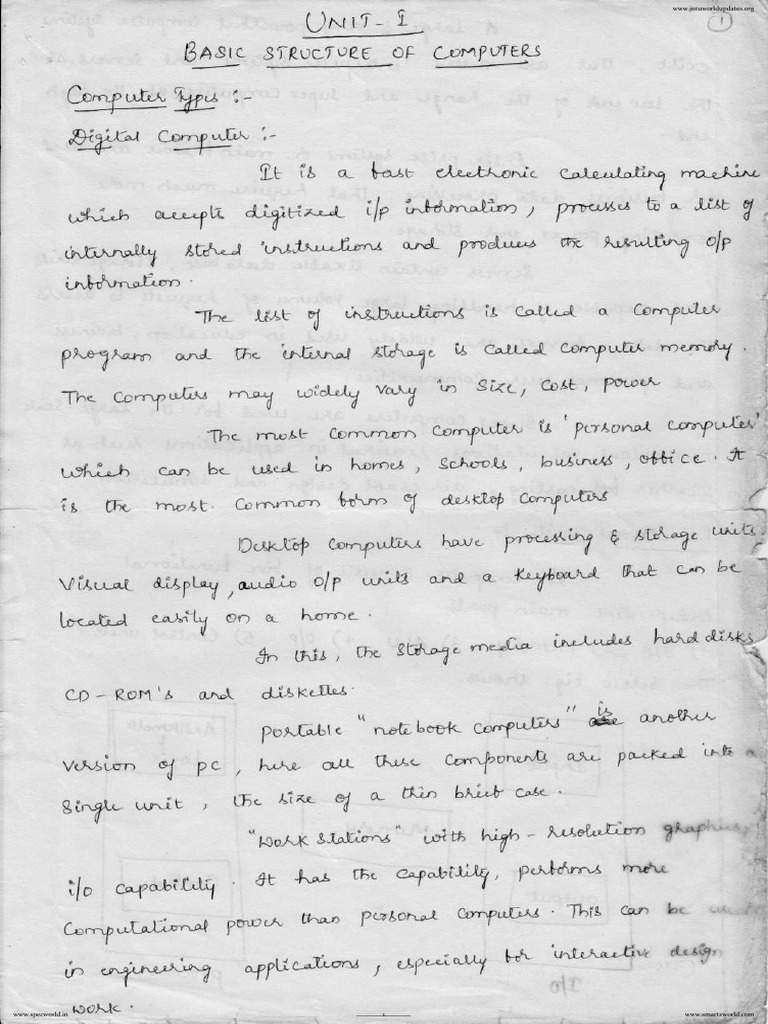 www.jntuworldupdates.org
1
UNIT-I
BASIC STRUCTURE OF COMPUTERS
Computer Types :-
Digital Computer :-
It is a fast electronic calculating machine
which accepts digitized i/p information, processes to a list of
internally stored instructions and produces the resulting o/p
information.
The list of instructions is called a computer
program and the internal storage is called computer memory.
The computers may widely vary in size, cost, power
The most common computer is 'personal computer'
which can be used in homes, schools, business, office. It
is the most common form of desktop computers
Desktop computers have processing & storage units
Visual display, audio o/p units and a keyboard that can be
located easily on a home.
In this, the storage media includes hard disks
CD-ROM's and diskettes.
Portable "notebook computers" is another
version of pc, here all these components are packed into a
single unit, the size of a thin brief case.
"Work stations" with high-resolution graphics,
i/o capability. It has the capability, performs more
computational power than personal computers. This can be used
in engineering applications, especially for interactive design
work.
www.specworld.in
www.smartzworld.com